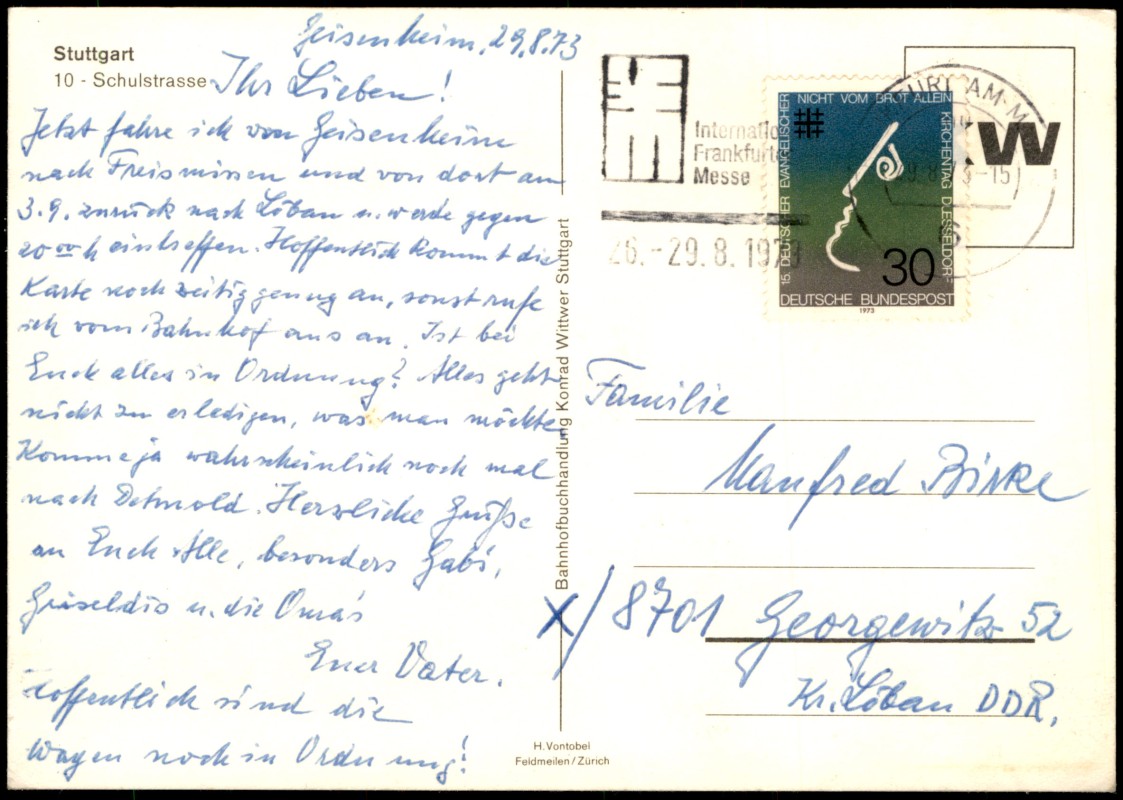 Stuttgart
10 - Schulstrasse
Geisenheim, 29.8.73
Ihr Lieben!
Jetzt fahre ich von Geisenheim
nach Freismissen und von dort am
3.9. zurück nach Löbau u. werde gegen
20 00 h eintreffen. Hoffentlich kommt die
Karte noch zeitig genug an, sonst rufe
ich vom Bahnhof aus an. Ist bei
Euch alles in Ordnung? Alles geht
nicht zu erledigen, was man möchte
Komme ja wahrscheinlich noch mal
nach Detmold. Herzliche Grüße
an Euch Alle, besonders Gabi,
Griseldis u. die Oma's
Euer Vater.
Hoffentlich sind die
Wagen noch in Ordnung!
Bahnhofbuchhandlung Konrad Wittwer Stuttgart
H. Vontobel
Feldmeilen/Zürich
Internatio
Frankfurte
Messe
26.-29.8.1973
FURT AM M
29.8.73-15
W
15. DEUTSCHER EVANGELISCHER
NICHT VOM BROT ALLEIN
KIRCHENTAG DUESSELDORF
30
DEUTSCHE BUNDESPOST
1973
Familie
Manfred Birke
X/ 8701 Georgewitz 52
Kr. Löbau DDR.